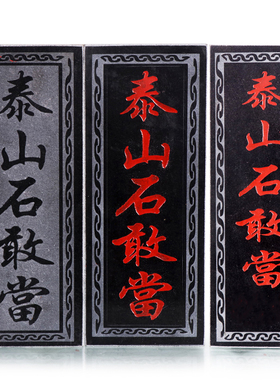 泰山石敢當
泰山石敢當
泰山石敢當